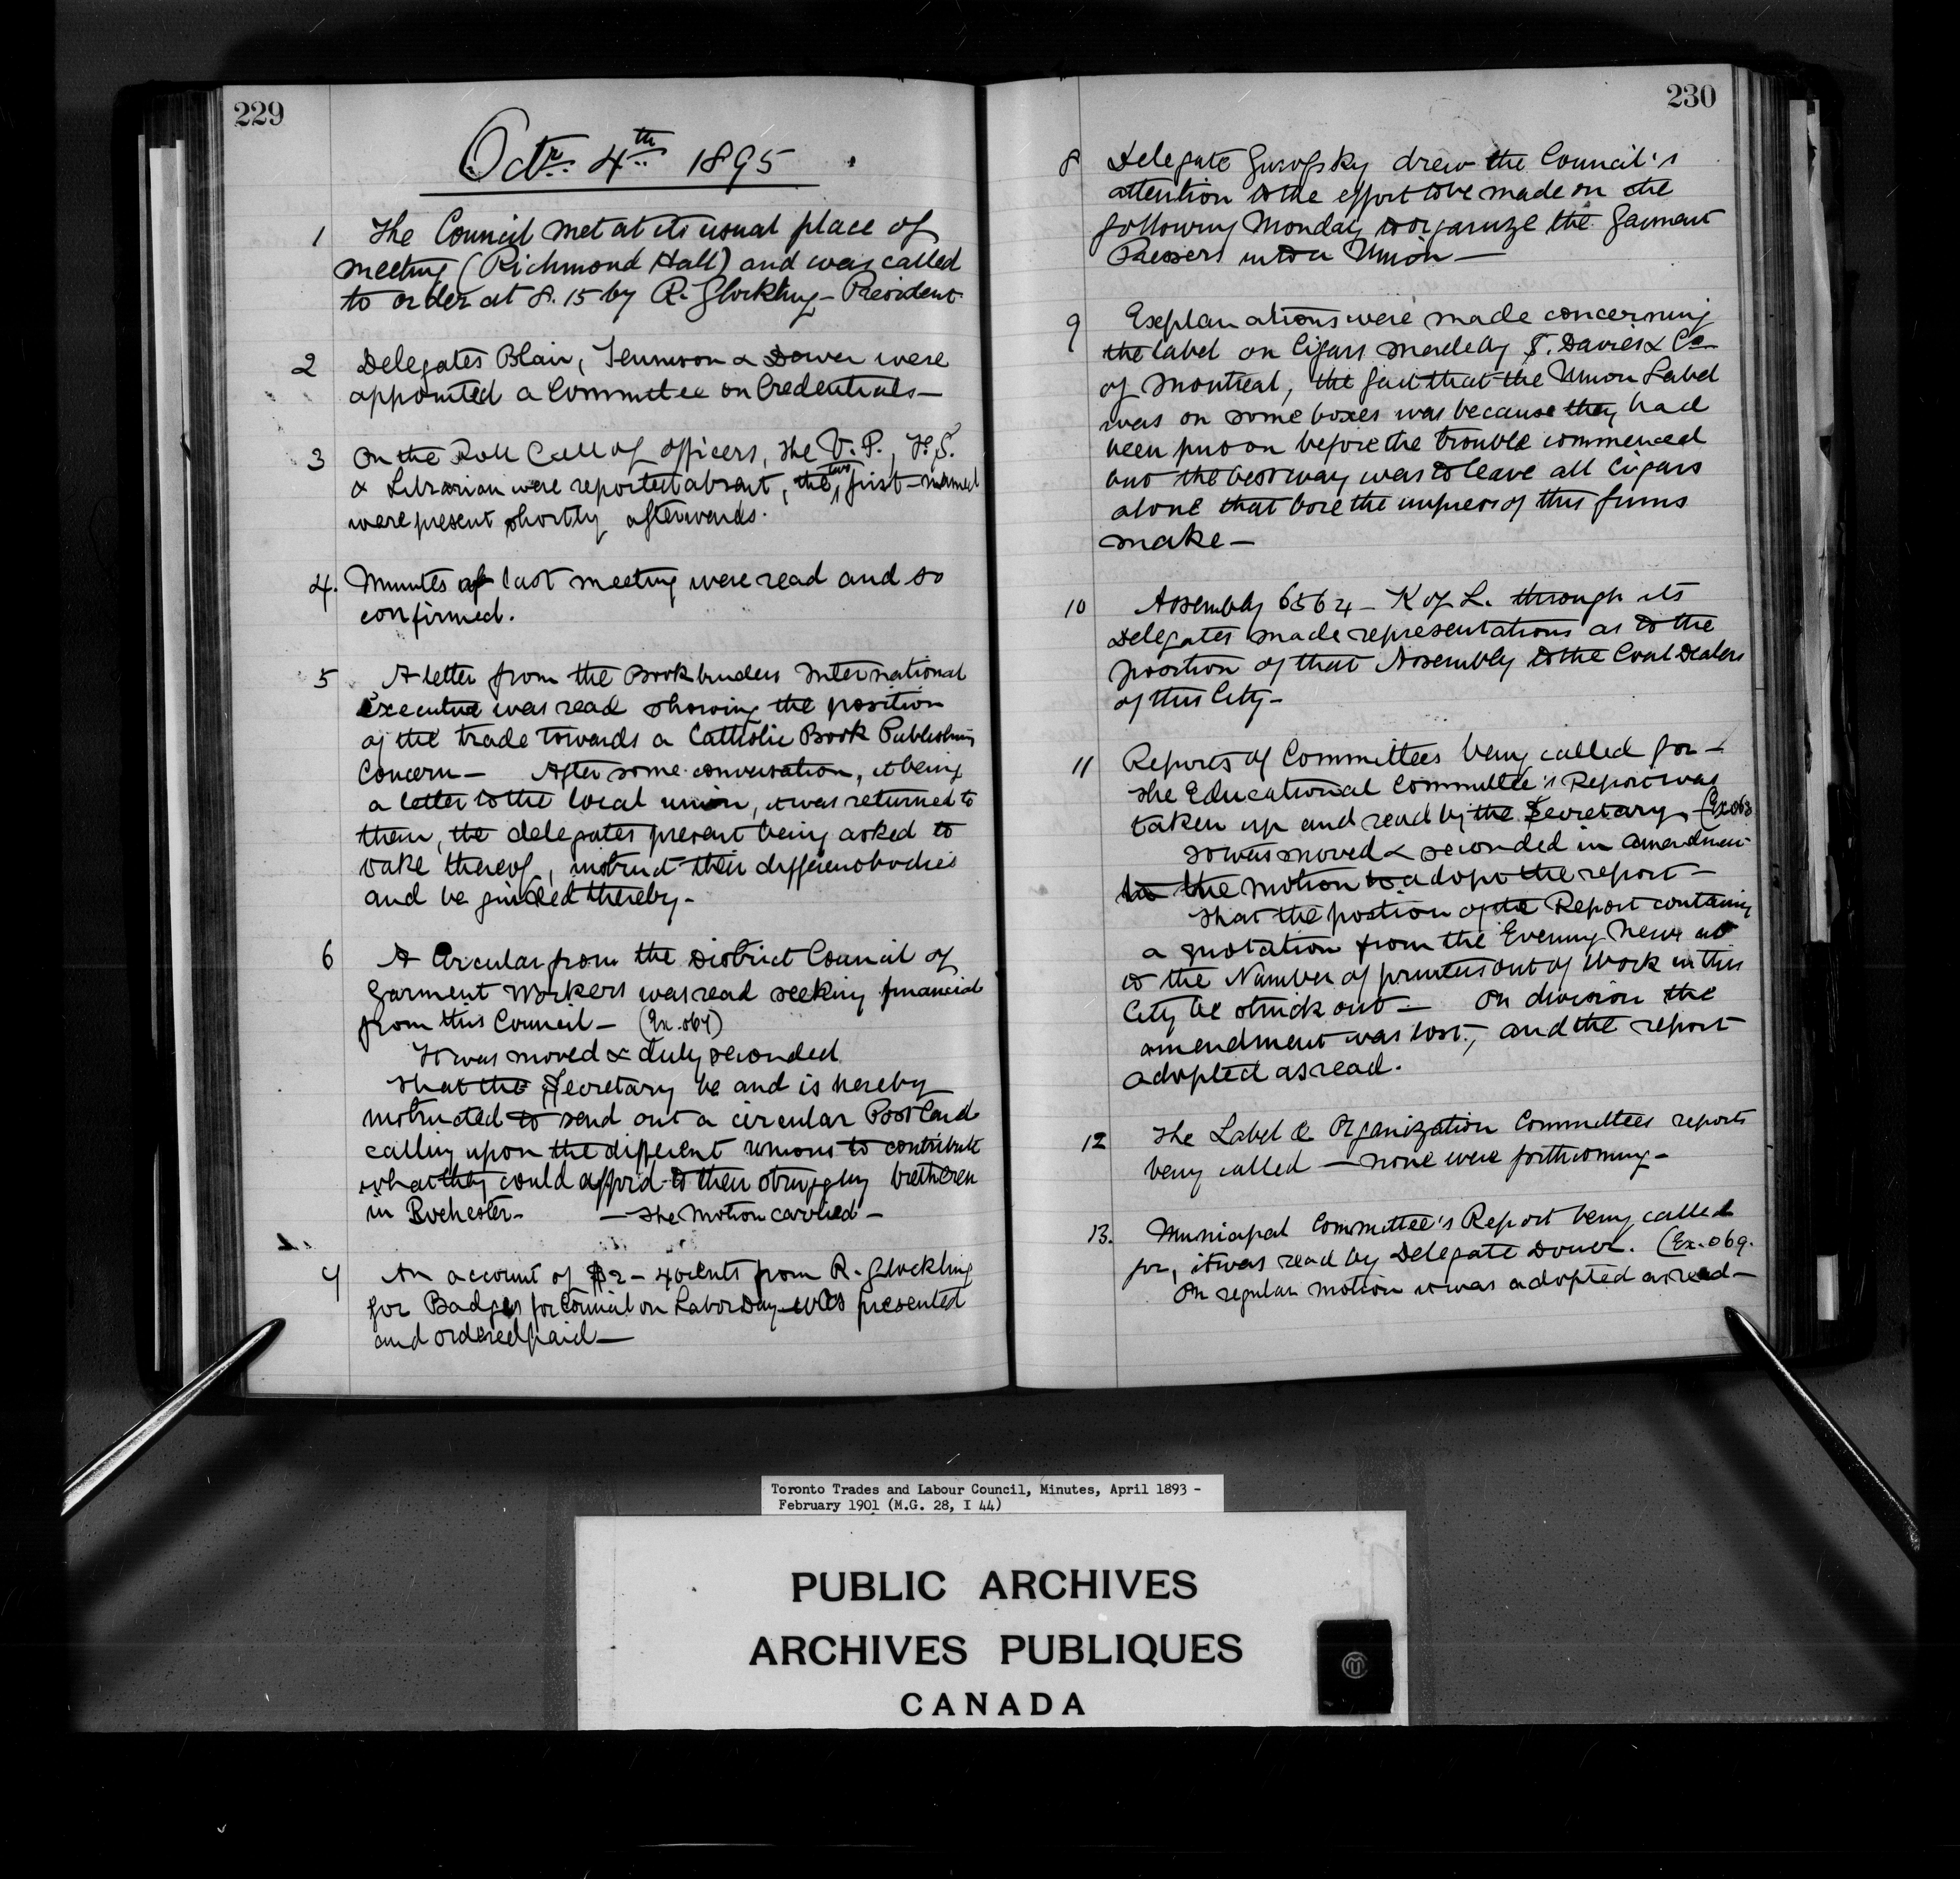 229
Octr. 4th 1895
1 The Council met at its usual place of
meeting (Richmond Hall) and was called
to order at 8.15 by R. Glockling - President
2 Delegates Blair, Tennison & Dower were
appointed a Committee on Credentials—
3 On the Roll Call of officers, the V. P., F. S.
& Librarian were reported absent, the two first-named
were present shortly afterwards.
4. Minutes of last meeting were read and so
confirmed.
5 A letter from the Bookbinders International
Executive was read showing the position
of the trade towards a Catholic Book Publishing
Concern — After some conversation, it being
a letter to the local union, it was returned to
them, the delegates present being asked to
take thereof, instruct their different bodies
and be guided thereby-
6 A Circular from the District Council of
Garment Workers was read seeking financial
from this Council — (Ex. 067)
It was moved & duly seconded
that the Secretary be and is hereby
instructed to send out a circular Post Card
calling upon the different unions to contribute
what they could afford to their struggling bretheren
in Rochester- — The Motion carried —
7 An account of $2 - 40cents from R. Glockling
for Badges for Council on Labor Day was presented
and ordered paid—
230
8 Delegate Gurofsky drew the Council's
attention to the effort to be made on the
following Monday to organize the Garment
Pressers into a Union—
9 Explanations were made concerning
the label on Cigars made by S. Davies & Co
of Montreal, the fact that the Union Label
was on some boxes was because they had
been put on before the trouble commenced
but the best way was to leave all Cigars
alone that bore the impress of this firms
make—
10 Assembly 6564 - K of L. through its
Delegates made representations as to the
position of that Assembly to the Coal Dealers
of this City-
11 Reports of Committees being called for —
The Educational Committee's Report was
taken up and read by the Secretary. (Ex 068
It was moved & seconded in amendment
to the motion to adopt the report —
That the portion of the Report containing
a quotation from the Evening News as
to the Number of printers out of Work in this
City be struck out — On division the
amendment was lost, and the report
adopted as read.
12 The Label & Organization Committees reports
being called — none were forthcoming-
13. Municipal Committee's Report being called
for, it was read by Delegate Dower. (Ex. 069.
On regular motion it was adopted as read—
Toronto Trades and Labour Council, Minutes, April 1893 -
February 1901 (M.G. 28, I 44)
PUBLIC ARCHIVES
ARCHIVES PUBLIQUES
CANADA